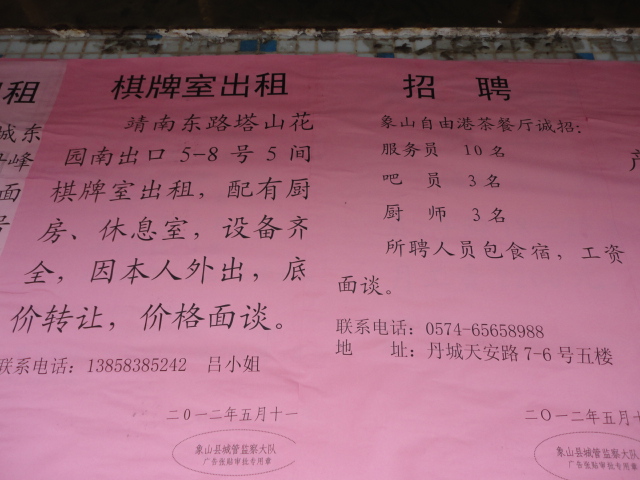 租
城东
峰
面
号
棋牌室出租
靖南东路塔山花
园南出口 5-8 号 5 间
棋牌室出租，配有厨
房、休息室，设备齐
全，因本人外出，底
价转让，价格面谈。
联系电话：13858385242 吕小姐
二〇一二年五月十一
象山县城管监察大队
广告张贴审批专用章
招 聘
象山自由港茶餐厅诚招：
服务员 10 名
吧 员 3 名
厨 师 3 名
所聘人员包食宿，工资
面谈。
联系电话：0574-65658988
地 址：丹城天安路 7-6 号五楼
二〇一二年五月十
象山县城管监察大队
广告张贴审批专用章